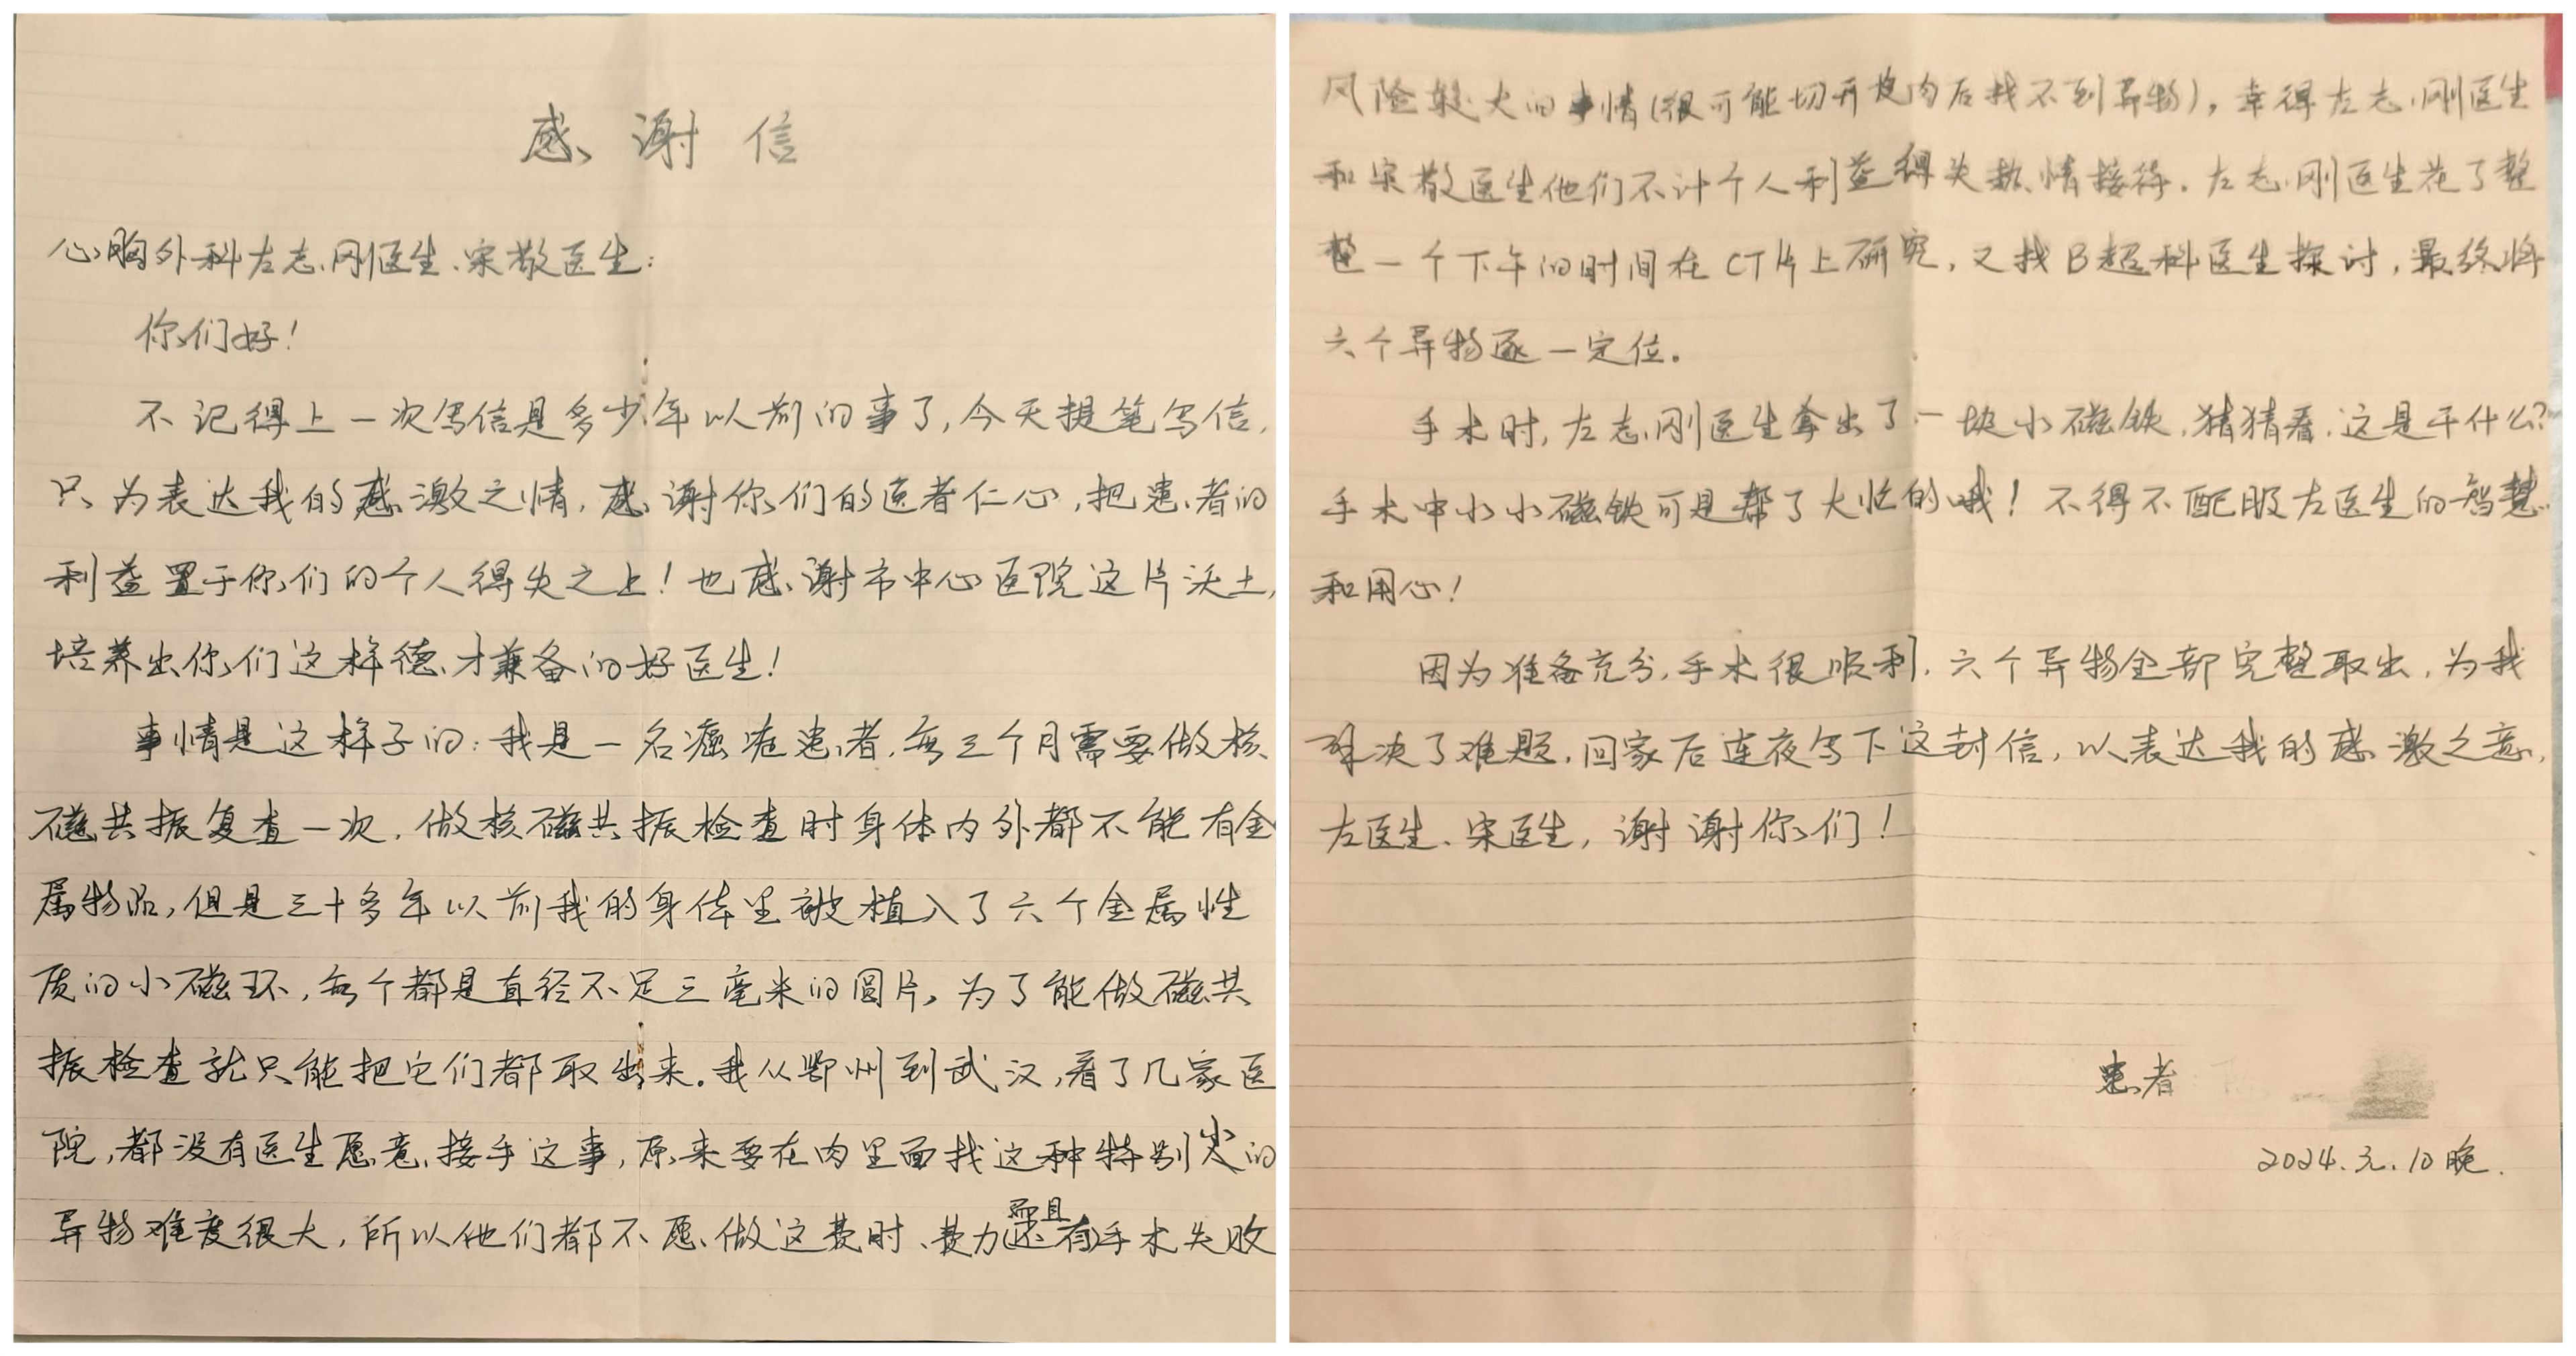 感谢信
心胸外科左志刚医生、宋敬医生:
你们好!
不记得上一次写信是多少年以前的事了,今天提笔写信,
只为表达我的感激之情,感谢你们的医者仁心,把患者的
利益置于你们的个人得失之上!也感谢市中心医院这片沃土,
培养出你们这样德才兼备的好医生!
事情是这样子的:我是一名癌症患者,每三个月需要做核
磁共振复查一次,做核磁共振检查时身体内外都不能有金
属物品,但是三十多年以前我的身体里被植入了六个金属性
质的小磁环,每个都是直径不足三毫米的圆片,为了能做磁共
振检查就只能把它们都取出来。我从鄂州到武汉,看了几家医
院,都没有医生愿意接手这事,原来要在肉里面找这种特别小的
异物难度很大,所以他们都不愿做这费时、费力而且(还有)手术失败
风险较大的事情(很可能切开皮肉后找不到异物),幸得左志刚医生
和宋敬医生他们不计个人利益得失热情接待。左志刚医生花了整
整一个下午的时间在CT片上研究,又找B超科医生探讨,最终将
六个异物逐一定位。
手术时,左志刚医生拿出了一块小磁铁,猜猜看,这是干什么?
手术中小小磁铁可是帮了大忙的哦!不得不配服左医生的智慧
和用心!
因为准备充分,手术很顺利,六个异物全部完整取出,为我
解决了难题,回家后连夜写下这封信,以表达我的感激之意,
左医生、宋医生,谢谢你们!
患者
2024.元.10晚.